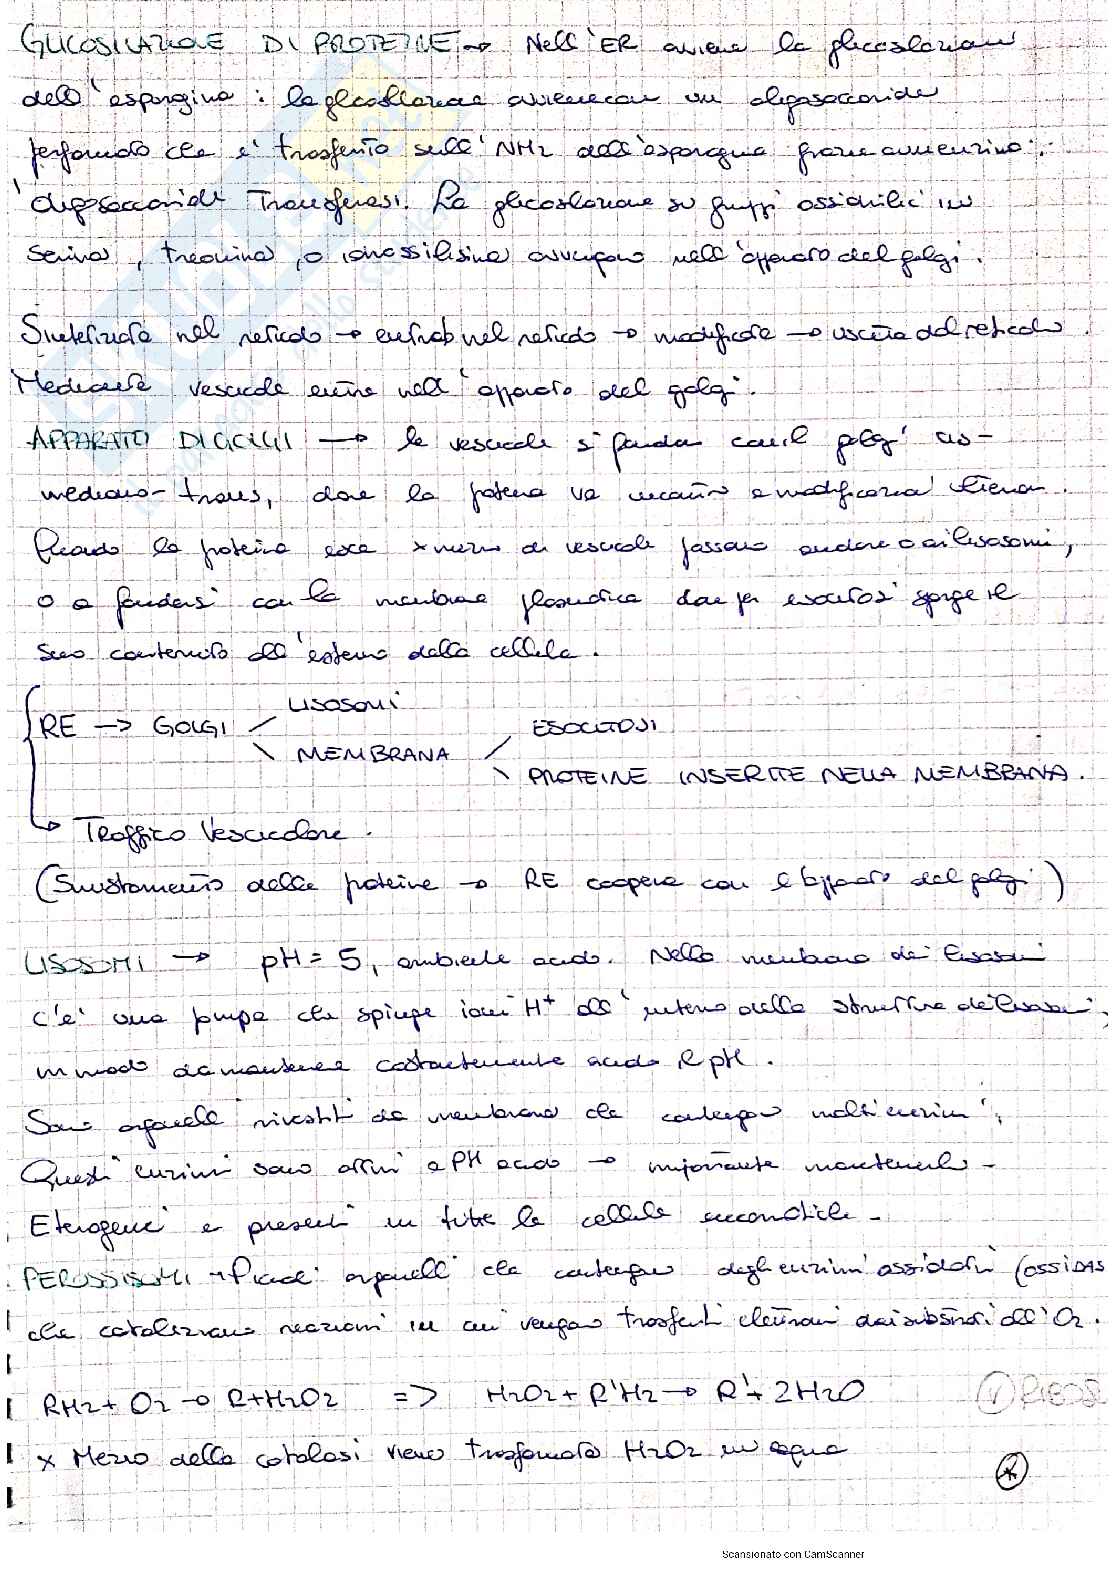 GLICOSILAZIONE DI PROTEINE → Nell'ER avviene la glicosilazione
dell'asparagina: la glicosilazione avviene con un oligosaccaride
performato che è trasferito sull'NH2 dell'asparagina grazie a un enzima:
l'oligosaccaride Transferasi. La glicosilazione su gruppi ossidrilici in
serina, treonina, o idrossilisina avvengono nell'apparato del golgi.
Sintetizzate nel reticolo → entrate nel reticolo → modificate → uscita dal reticolo.
Mediante vescicole entra nell'apparato del golgi.
APPARATO DI GOLGI → le vescicole si fondono con il golgi cis-
mediano-trans, dove la proteina va incontro a modificazioni
Quando la proteina esce x mezzo di vescicole possono andare o ai lisosomi,
o a fondersi con la membrana plasmatica dove per esocitosi sporge il
suo contenuto all'esterno della cellula.
RE → GOLGI
LISOSOMI
MEMBRANA
ESOCITOSI
PROTEINE INSERITE NELLA MEMBRANA.
Traffico Vescicolare.
(Smistamento delle proteine → RE coopera con l'apparato del golgi)
LISOSOMI → pH = 5, ambiente acido. Nella membrana dei lisosomi
c'è una pompa che spinge ioni H+ all'interno della struttura dei lisosomi,
in modo da mantenere costantemente acido il pH.
Sono organelli rivestiti da membrana che contengono molti enzimi,
Questi enzimi sono affini a PH acido → importante mantenerlo -
Eterogenei e presenti in tutte le cellule eucariotiche -
PEROSSISOMI → Piccoli organelli che contengono degli enzimi ossidativi (OSSIDAS
che catalizzano reazioni in cui vengono trasferiti elettroni dai substrati all'O2.
RH2 + O2 → R + H2O2 => H2O2 + R'H2 → R' + 2H2O
x Mezzo della catalasi viene trasformato H2O2 in acqua
Scansionato con CamScanner